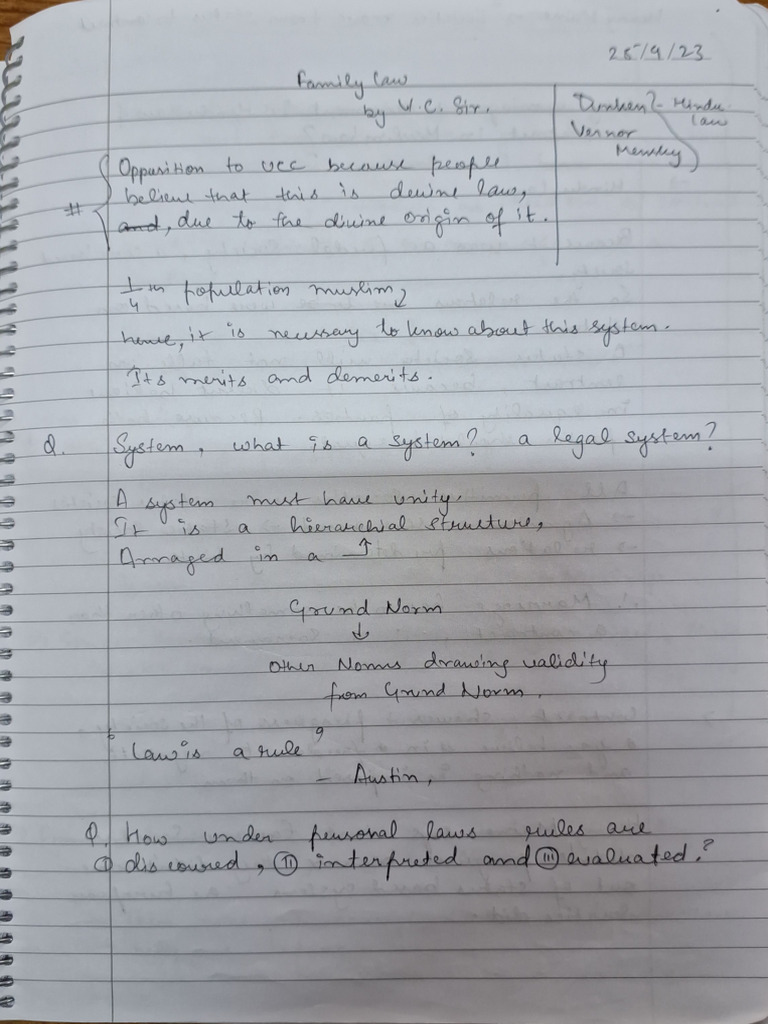 25/9/23
Family Law
by V.C. Sir.
Hindu
law
Vernor
Menskey
Opposition to UCC because people
believe that this is devine law,
# and, due to the divine origin of it.
1/4 th population muslim
hence, it is necessary to know about this system.
Its merits and demerits.
Q. System, what is a system? a legal system?
A system must have unity.
It is a hierarchial structure,
Arranged in a ↑
Grund Norm
↓
Other Norms drawing validity
from Grund Norm.
"Law is a rule"
- Austin,
Q. How under personal laws rules are
① discovered, ② interpreted and ③ evaluated?